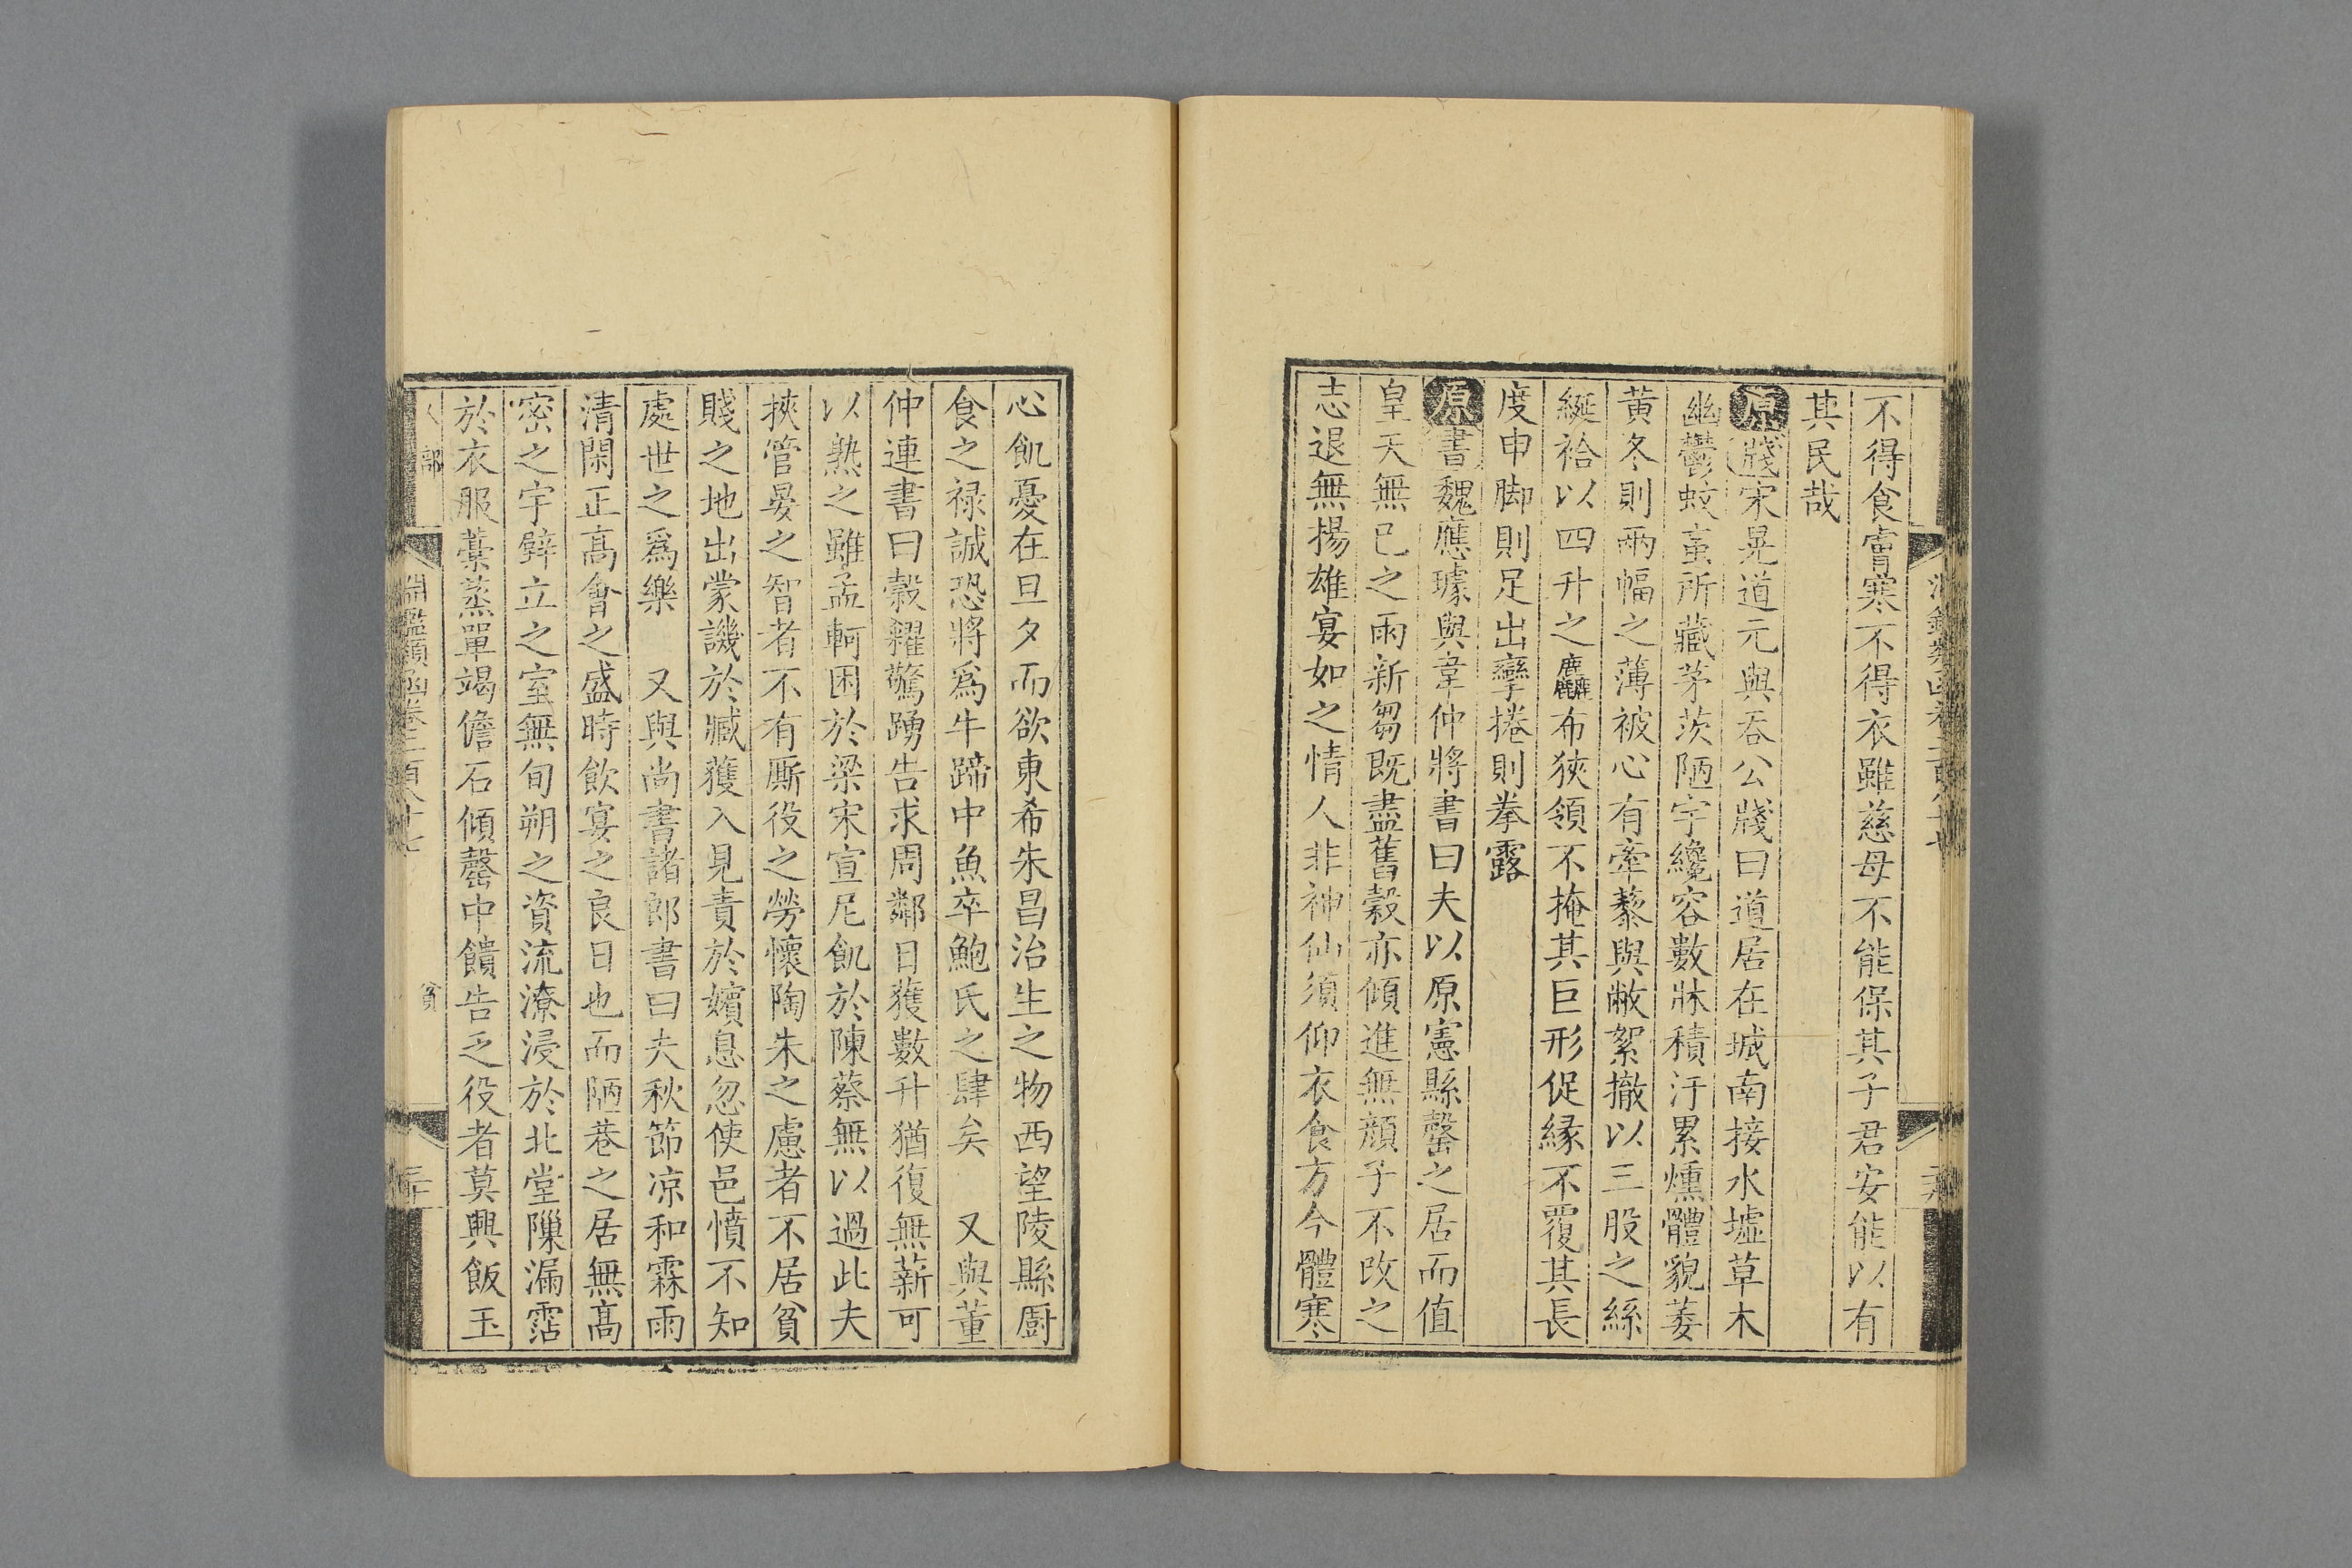 不得食膚寒不得衣雖慈母不能保其子君安能以有
其民哉
原牋宋晃道元與吞公牋曰道居在城南接水墟草木
幽鬱蚊䖟所藏茅茨陋宇纔容數牀積汙累燻體貌萎
黃冬則兩幅之薄被心有牽藜與敝絮撤以三股之絲
綖袷以四升之麤布狹領不掩其巨形促緣不覆其長
度申脚則足出攣捲則拳露
原書魏應璩與韋仲將書曰夫以原憲縣罄之居而值
皇天無已之雨新芻既盡舊穀亦傾進無顏子不改之
志退無揚雄宴如之情人非神仙須仰衣食方今體寒
心飢憂在旦夕而欲東希朱昌治生之物西望陵縣厨
食之禄誠恐將爲牛蹄中魚卒鮑氏之肆矣　又與董
仲連書曰穀糴驚踴告求周鄰日獲數升猶復無薪可
以熟之雖孟軻困於梁宋宣尼飢於陳蔡無以過此夫
挾管晏之智者不有厮役之勞懷陶朱之慮者不居貧
賤之地出蒙譏於臧獲入見責於嬪息忽使邑憤不知
處世之爲樂　又與尚書諸郎書曰夫秋節凉和霖雨
清閑正高會之盛時飲宴之良日也而陋巷之居無高
密之宇壁立之室無旬朔之資流潦浸於北堂隟漏霑
於衣服藁蒸單竭儋石傾罄中饋告乏役者莫興飯玉
人部
淵鑑類函卷二百八十七
貧